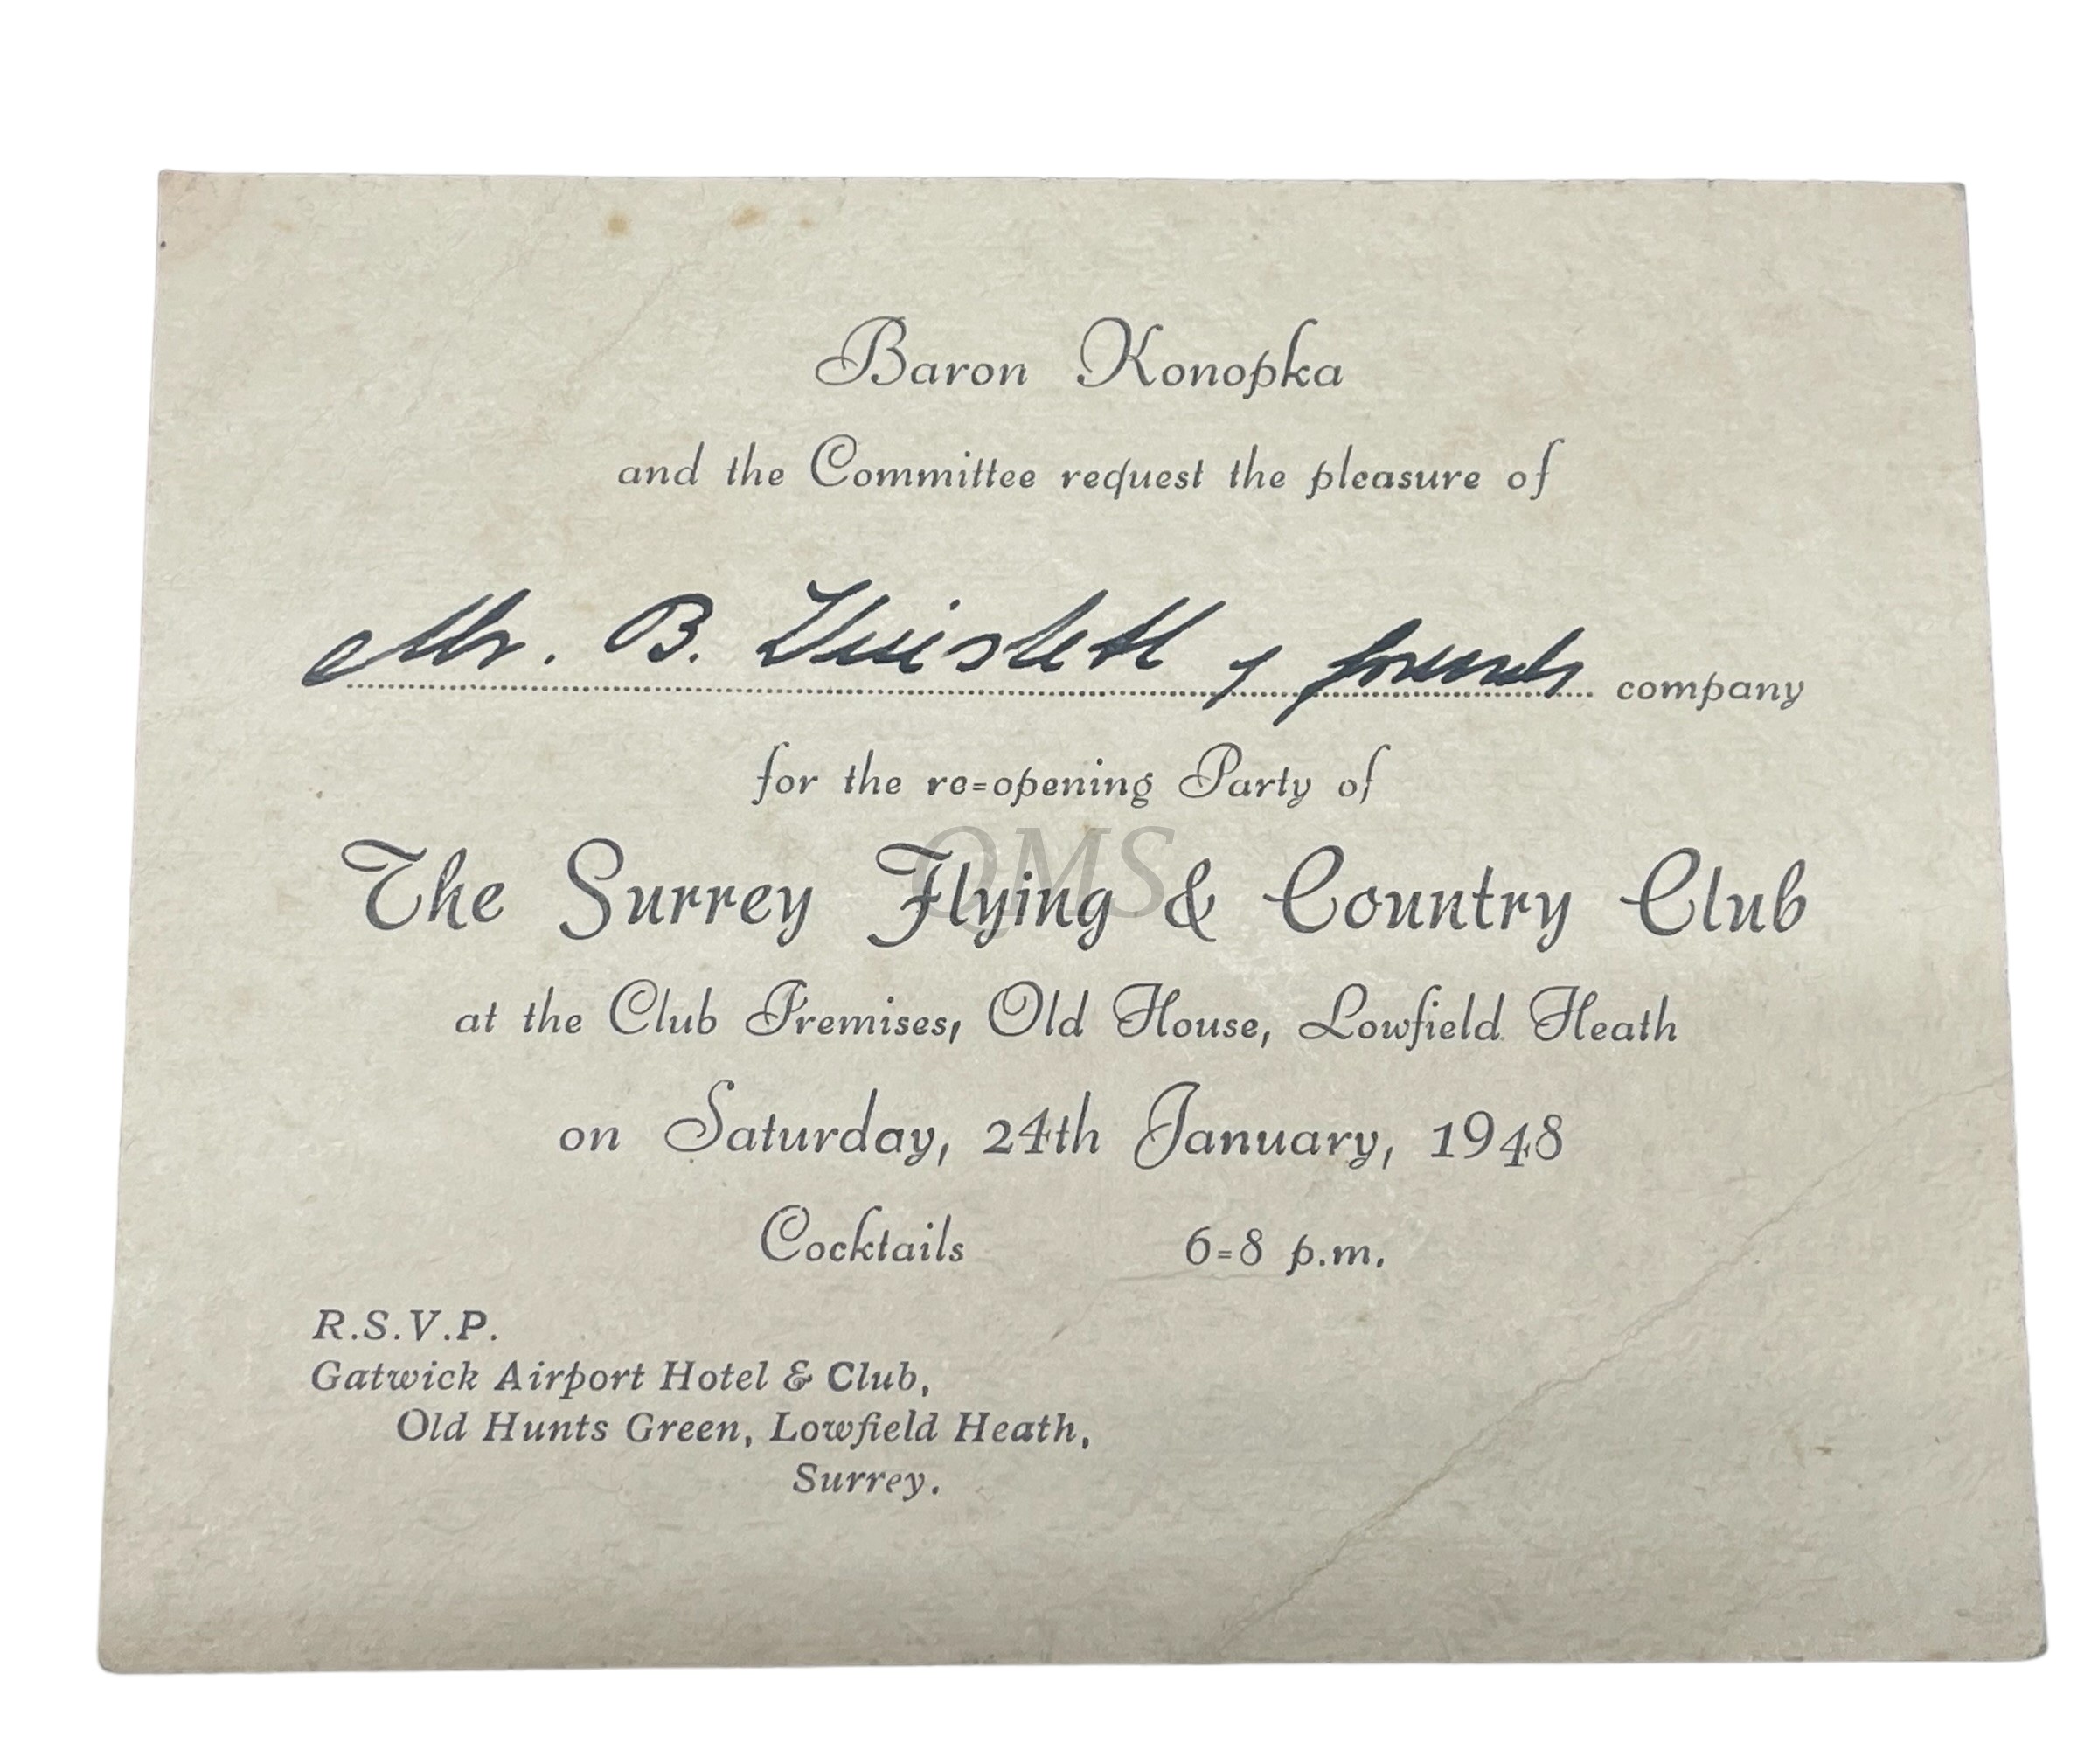 Baron Konopka
and the Committee request the pleasure of
Mr. B. & friends company
for the re=opening Party of
The Surrey Flying & Country Club
QMS
at the Club Premises, Old House, Lowfield Heath
on Saturday, 24th January, 1948
Cocktails 6=8 p.m.
R.S.V.P.
Gatwick Airport Hotel & Club,
Old Hunts Green, Lowfield Heath,
Surrey.